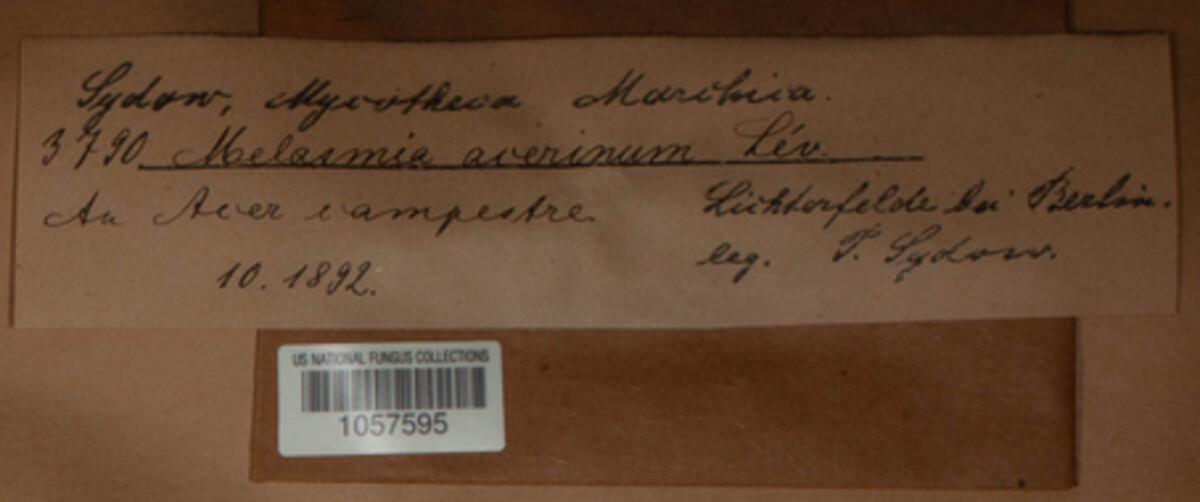 Sydow, Mycotheca Marchica.
3790 Melasmia acerinum Lév.
An Acer campestre
Lichterfelde bei Berlin.
10. 1892.
leg. P. Sydow.
US NATIONAL FUNGUS COLLECTIONS
1057595